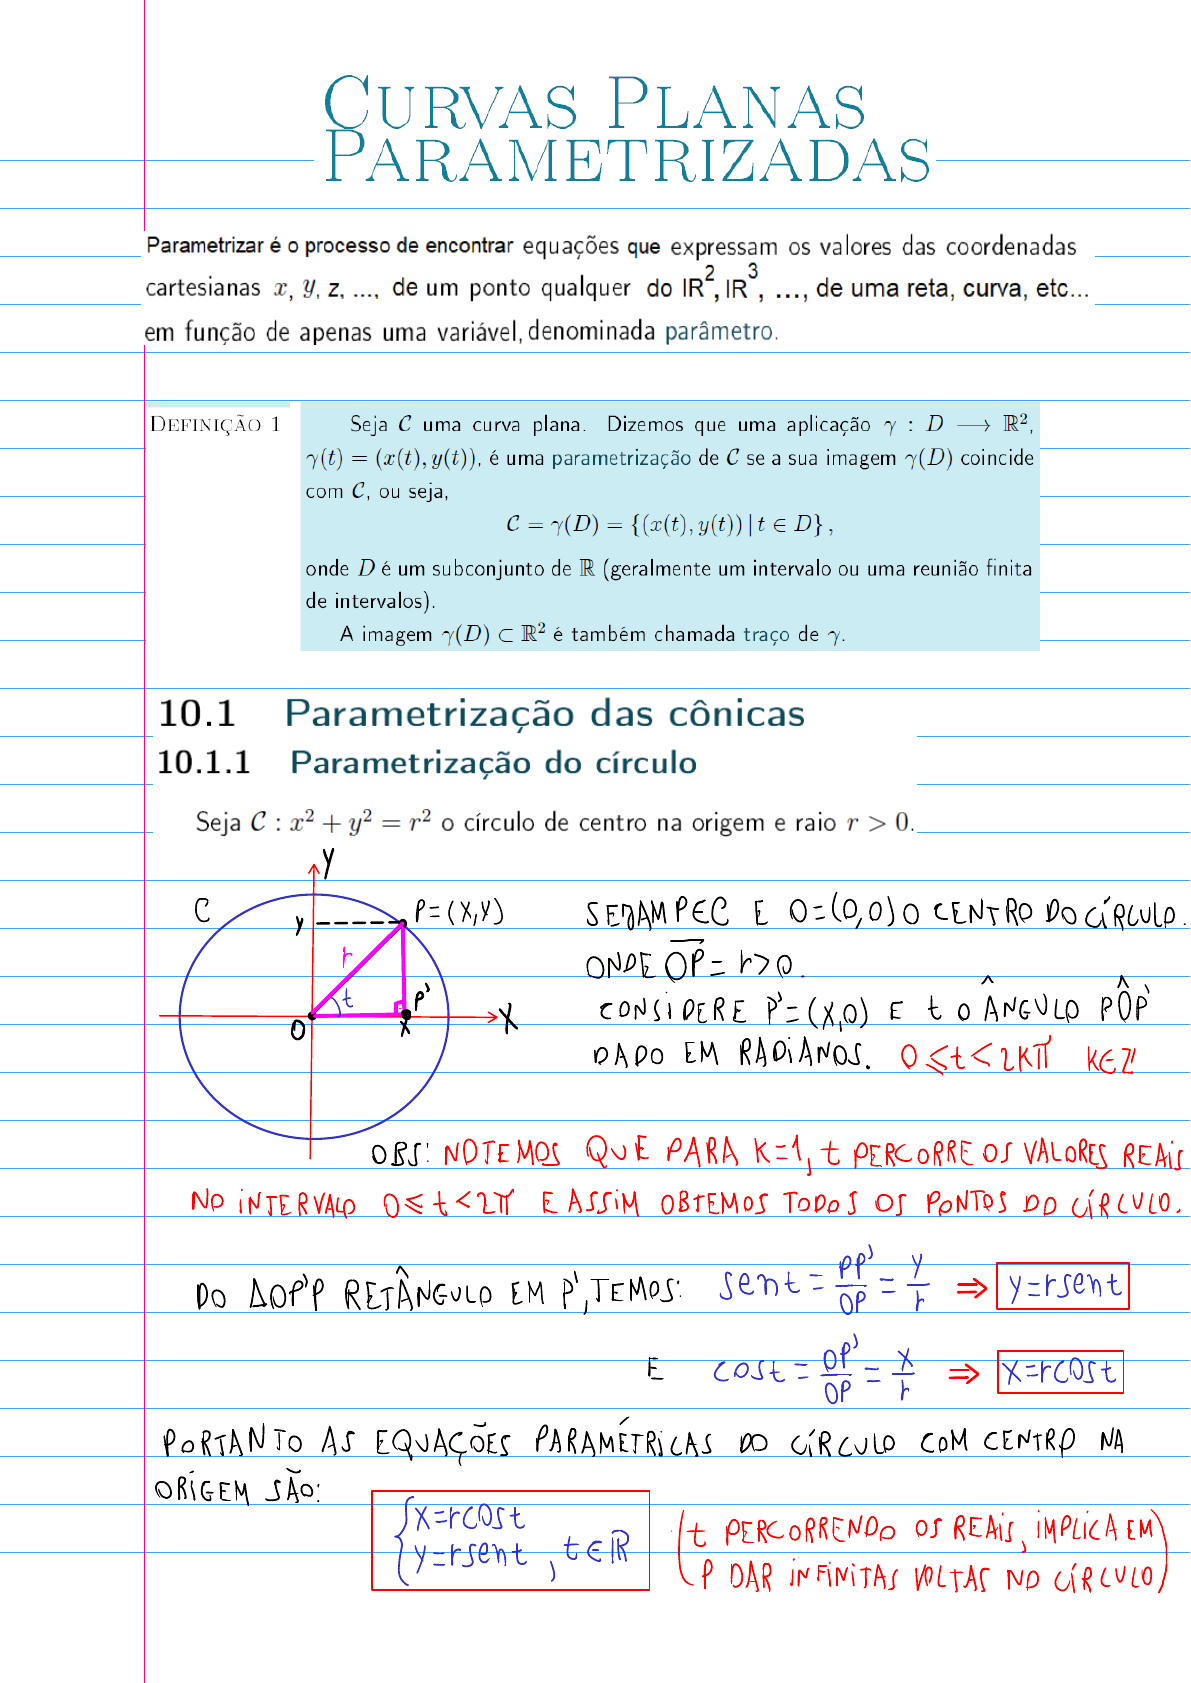 CURVAS PLANAS
PARAMETRIZADAS
Parametrizar é o processo de encontrar equações que expressam os valores das coordenadas
cartesianas x, y, z, ..., de um ponto qualquer do IR², IR³, ..., de uma reta, curva, etc...
em função de apenas uma variável, denominada parâmetro.
DEFINIÇÃO 1
Seja C uma curva plana. Dizemos que uma aplicação γ : D ⟶ ℝ²,
γ(t) = (x(t), y(t)), é uma parametrização de C se a sua imagem γ(D) coincide
com C, ou seja,
C = γ(D) = {(x(t), y(t)) | t ∈ D} ,
onde D é um subconjunto de ℝ (geralmente um intervalo ou uma reunião finita
de intervalos).
A imagem γ(D) ⊂ ℝ² é também chamada traço de γ.
10.1 Parametrização das cônicas
10.1.1 Parametrização do círculo
Seja C : x² + y² = r² o círculo de centro na origem e raio r > 0.
Y
C
y
P=(X,Y)
r
t
P'
O
X
X
SEJAM P∈C E O=(0,0) O CENTRO DO CÍRCULO.
ONDE O̅P̅ = r>0.
CONSIDERE P'=(X,0) E t O ÂNGULO PÔP'
DADO EM RADIANOS. 0⩽t<2Kπ K∈Z
OBS: NOTEMOS QUE PARA K=1, t PERCORRE OS VALORES REAIS
NO INTERVALO 0⩽t<2π E ASSIM OBTEMOS TODOS OS PONTOS DO CÍRCULO.
DO ΔOP'P RETÂNGULO EM P', TEMOS: sent = PP'/OP = y/r ⇒ y=rsent
E cost = OP'/OP = x/r ⇒ x=rcost
PORTANTO AS EQUAÇÕES PARAMÉTRICAS DO CÍRCULO COM CENTRO NA
ORIGEM SÃO:
{x=rcost
y=rsent , t∈ℝ
(t PERCORRENDO OS REAIS, IMPLICA EM
P DAR INFINITAS VOLTAS NO CÍRCULO)